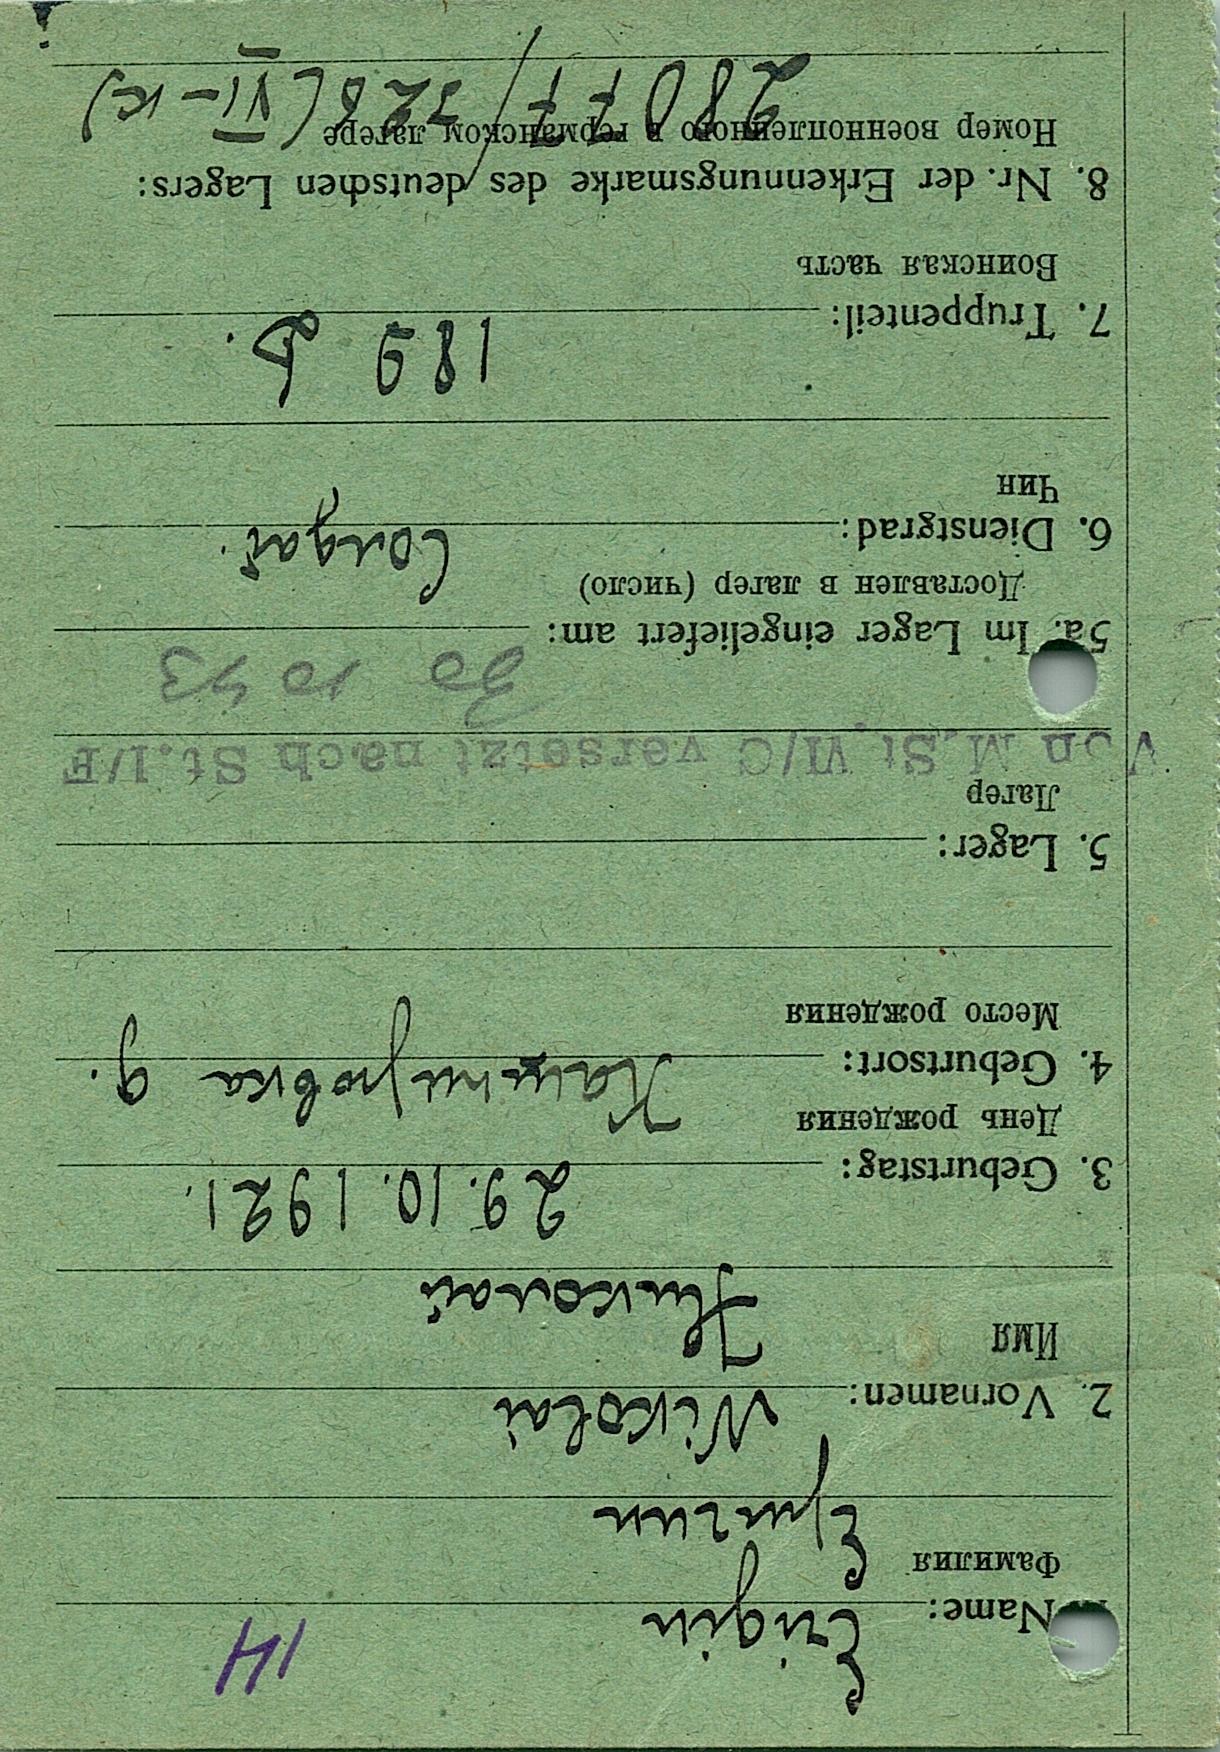 14
1. Name: Erigin
Фамилия Ериги­н
2. Vornamen: Nikolai
Имя Николай
3. Geburtstag: 29.10.1921.
День рождения
4. Geburtsort: д.
Место рождения
5. Lager:
Лагер
Von M.St.VI/C versetzt nach St.I/F
30 10 43
5a. Im Lager eingeliefert am:
Доставлен в лагер (число)
6. Dienstgrad: Солдат.
Чин
189 D.
7. Truppenteil:
Воинская часть
8. Nr. der Erkennungsmarke des deutschen Lagers:
Номер военнопленного в германском лагере
28077/326 (VI-K)